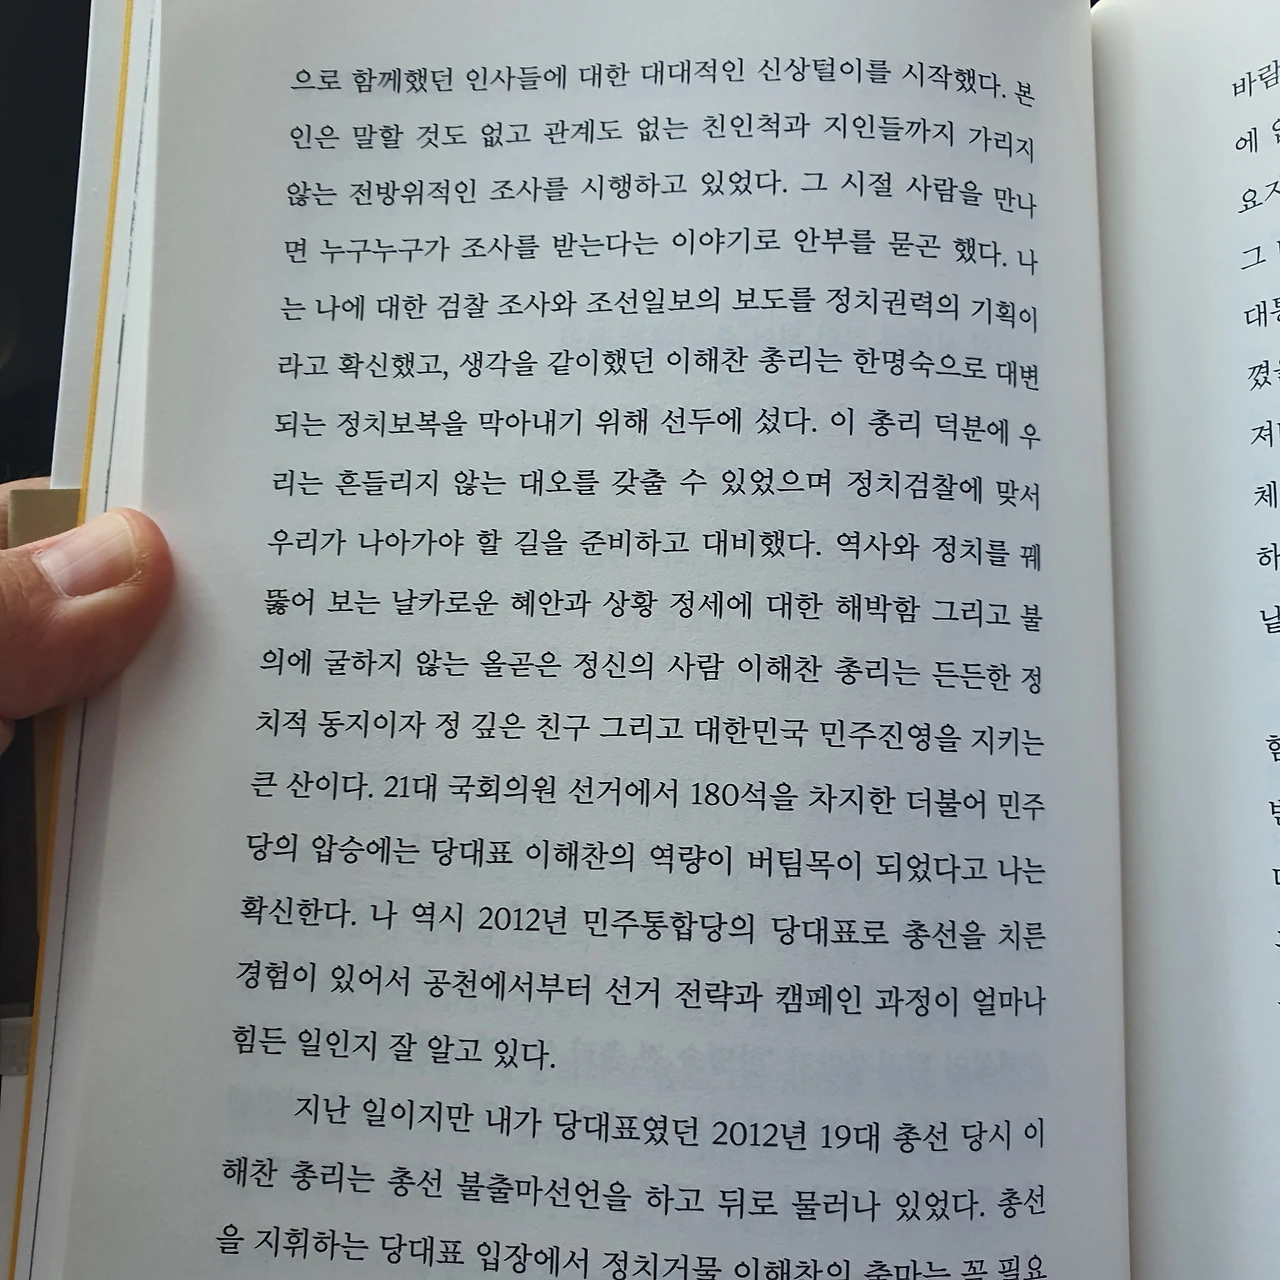 으로 함께했던 인사들에 대한 대대적인 신상털이를 시작했다. 본
인은 말할 것도 없고 관계도 없는 친인척과 지인들까지 가리지
않는 전방위적인 조사를 시행하고 있었다. 그 시절 사람을 만나
면 누구누구가 조사를 받는다는 이야기로 안부를 묻곤 했다. 나
는 나에 대한 검찰 조사와 조선일보의 보도를 정치권력의 기획이
라고 확신했고, 생각을 같이했던 이해찬 총리는 한명숙으로 대변
되는 정치보복을 막아내기 위해 선두에 섰다. 이 총리 덕분에 우
리는 흔들리지 않는 대오를 갖출 수 있었으며 정치검찰에 맞서
우리가 나아가야 할 길을 준비하고 대비했다. 역사와 정치를 꿰
뚫어 보는 날카로운 혜안과 상황 정세에 대한 해박함 그리고 불
의에 굴하지 않는 올곧은 정신의 사람 이해찬 총리는 든든한 정
치적 동지이자 정 깊은 친구 그리고 대한민국 민주진영을 지키는
큰 산이다. 21대 국회의원 선거에서 180석을 차지한 더불어 민주
당의 압승에는 당대표 이해찬의 역량이 버팀목이 되었다고 나는
확신한다. 나 역시 2012년 민주통합당의 당대표로 총선을 치른
경험이 있어서 공천에서부터 선거 전략과 캠페인 과정이 얼마나
힘든 일인지 잘 알고 있다.
지난 일이지만 내가 당대표였던 2012년 19대 총선 당시 이
해찬 총리는 총선 불출마선언을 하고 뒤로 물러나 있었다. 총선
을 지휘하는 당대표 입장에서 정치거물 이해찬의 출마는 꼭 필요
바람
에
그
하